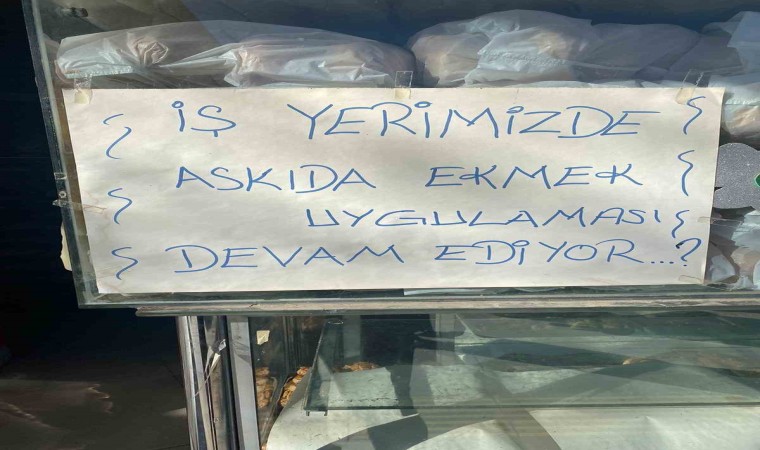 İŞ YERİMİZDE
ASKIDA EKMEK
UYGULAMASI
DEVAM EDİYOR...?